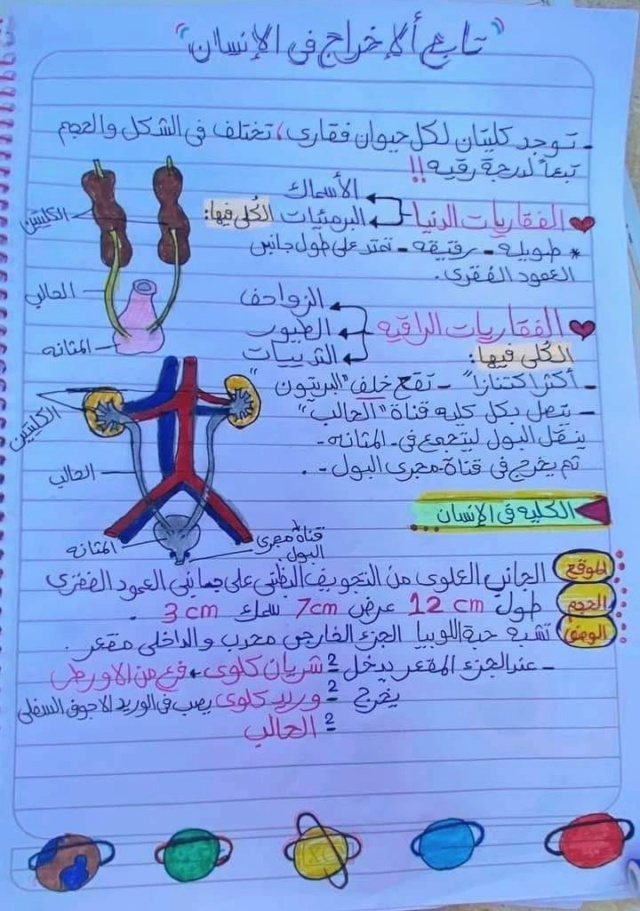 "تابع الإخراج فى الإنسان"
- توجد كليتان لكل حيوان فقارى، تختلف فى الشكل والحجم
تبعاً لدرجة رقيه!!
الفقاريات الدنيا
الأسماك
البرمئيات
الكُلى فيها:
* طويله - رقيقه - تمتد على طول جانبى
العمود الفقرى.
الكليتين
الحالب
المثانه
الفقاريات الراقيه
الزواحف
الطيور
الثدييات
الكُلى فيها:
- أكثر اكتنازاً - تقع خلف "البريتون"
- يتصل بكل كليه قناة "الحالب"
ينقل البول ليتجمع فى المثانه -
ثم يخرج فى قناة مجرى البول -.
الكليتين
الحالب
المثانه
قناة مجرى
البول
الكليه فى الإنسان
الموقع الجانب العلوى من التجويف البطنى على جانبى العمود الفقرى
الحجم طول 12 cm عرض 7cm سمك 3 cm .
الوصف تشبه حبة اللوبيا الجزء الخارجى محدب والداخلى مقعر .
- عند الجزء المقعر يدخل 2 شريان كلوى فرع من الاورطى
يخرج 2 وريد كلوى يصب فى الوريد الاجوف السفلى
2 الحالب